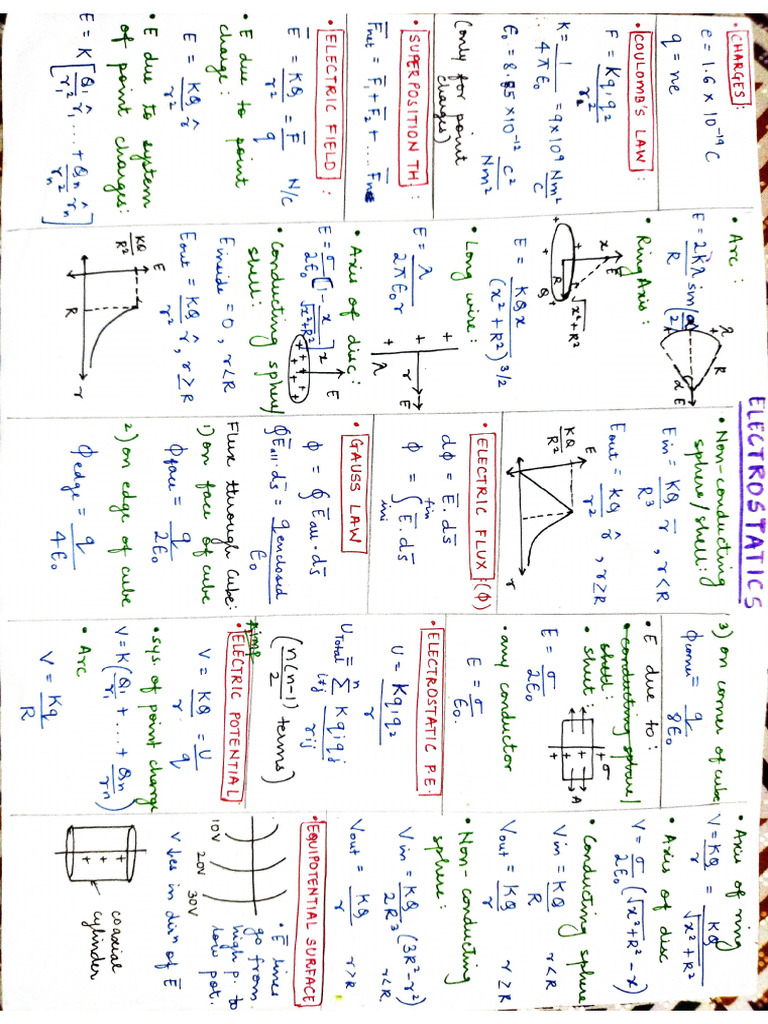 ELECTROSTATICS
• CHARGES:
e = 1.6 × 10⁻¹⁹ C
q = ne
• COULOMB'S LAW :
F = Kq₁q₂/r²
K = 1/4πε₀ = 9×10⁹ Nm²/C
ε₀ = 8.85×10⁻¹² C²/Nm²
(only for point charges)
• SUPERPOSITION TH :
F̄net = F̄₁ + F̄₂ + .... F̄n
• ELECTRIC FIELD :
Ē = KQ/r² = F̄/q N/C
• E due to point
charge:
E = KQ/r² r̂
• E due to system
of point charges:
E = K[Q₁/r₁² r̂₁ .... + Qn/rn² r̂n]
• Arc :
E = 2Kλ/R sin(α/2)
λ
R
α
E
• Ring Axis :
x
E
√x²+R²
R
Q
E = KQx/(x²+R²)^3/2
• Long wire :
E = λ/2πε₀r
r
E
λ
• Axis of disc :
E = σ/2ε₀ [1 - x/√x²+R²]
x
E
• Conducting sphere/
shell:
Einside = 0, r<R
Eout = KQ/r² r̂, r≥R
KQ/R²
E
R
r
• Non-conducting
sphere/shell:
Ein = KQ/R³ r̄, r<R
Eout = KQ/r² r̂, r≥R
KQ/R²
E
r
• ELECTRIC FLUX :(ϕ)
dϕ = Ē.ds̄
ϕ = ∫ini^fin Ē.ds̄
• GAUSS LAW
ϕ = ∮Ēall.ds̄
∮Ēall.ds̄ = qenclosed/ε₀
Flux through Cube:
1) on face of cube
ϕface = q/2ε₀
2) on edge of cube
ϕedge = q/4ε₀
3) on corner of cube
ϕcorner = q/8ε₀
• E due to:
• conducting sphere/
shell:
• sheet:
E = σ/2ε₀
σ
A
• any conductor
E = σ/ε₀.
• ELECTROSTATIC P.E.
U = Kq₁q₂/r
Utotal = Σ i≠j n Kqiqj/rij
(n(n-1)/2 terms)
• ELECTRIC POTENTIAL
V = KQ/r = U/q
• sys. of point charge
V = K(Q₁/r₁ + ... + Qn/rn)
• Arc
V = Kq/R
• Axis of ring
V = KQ/r = KQ/√x²+R²
• Axis of disc
V = σ/2ε₀ (√x²+R² - x)
• Conducting sphere
Vin = KQ/R r<R
Vout = KQ/r r≥R
• Non-conducting
sphere:
Vin = KQ/2R³ (3R²-r²)
r<R
Vout = KQ/r r>R
• EQUIPOTENTIAL SURFACE
10V 20V 30V
• Ē lines
go from
high p. to
low pot.
V ↓es in dirⁿ of Ē
coaxial
cylinder